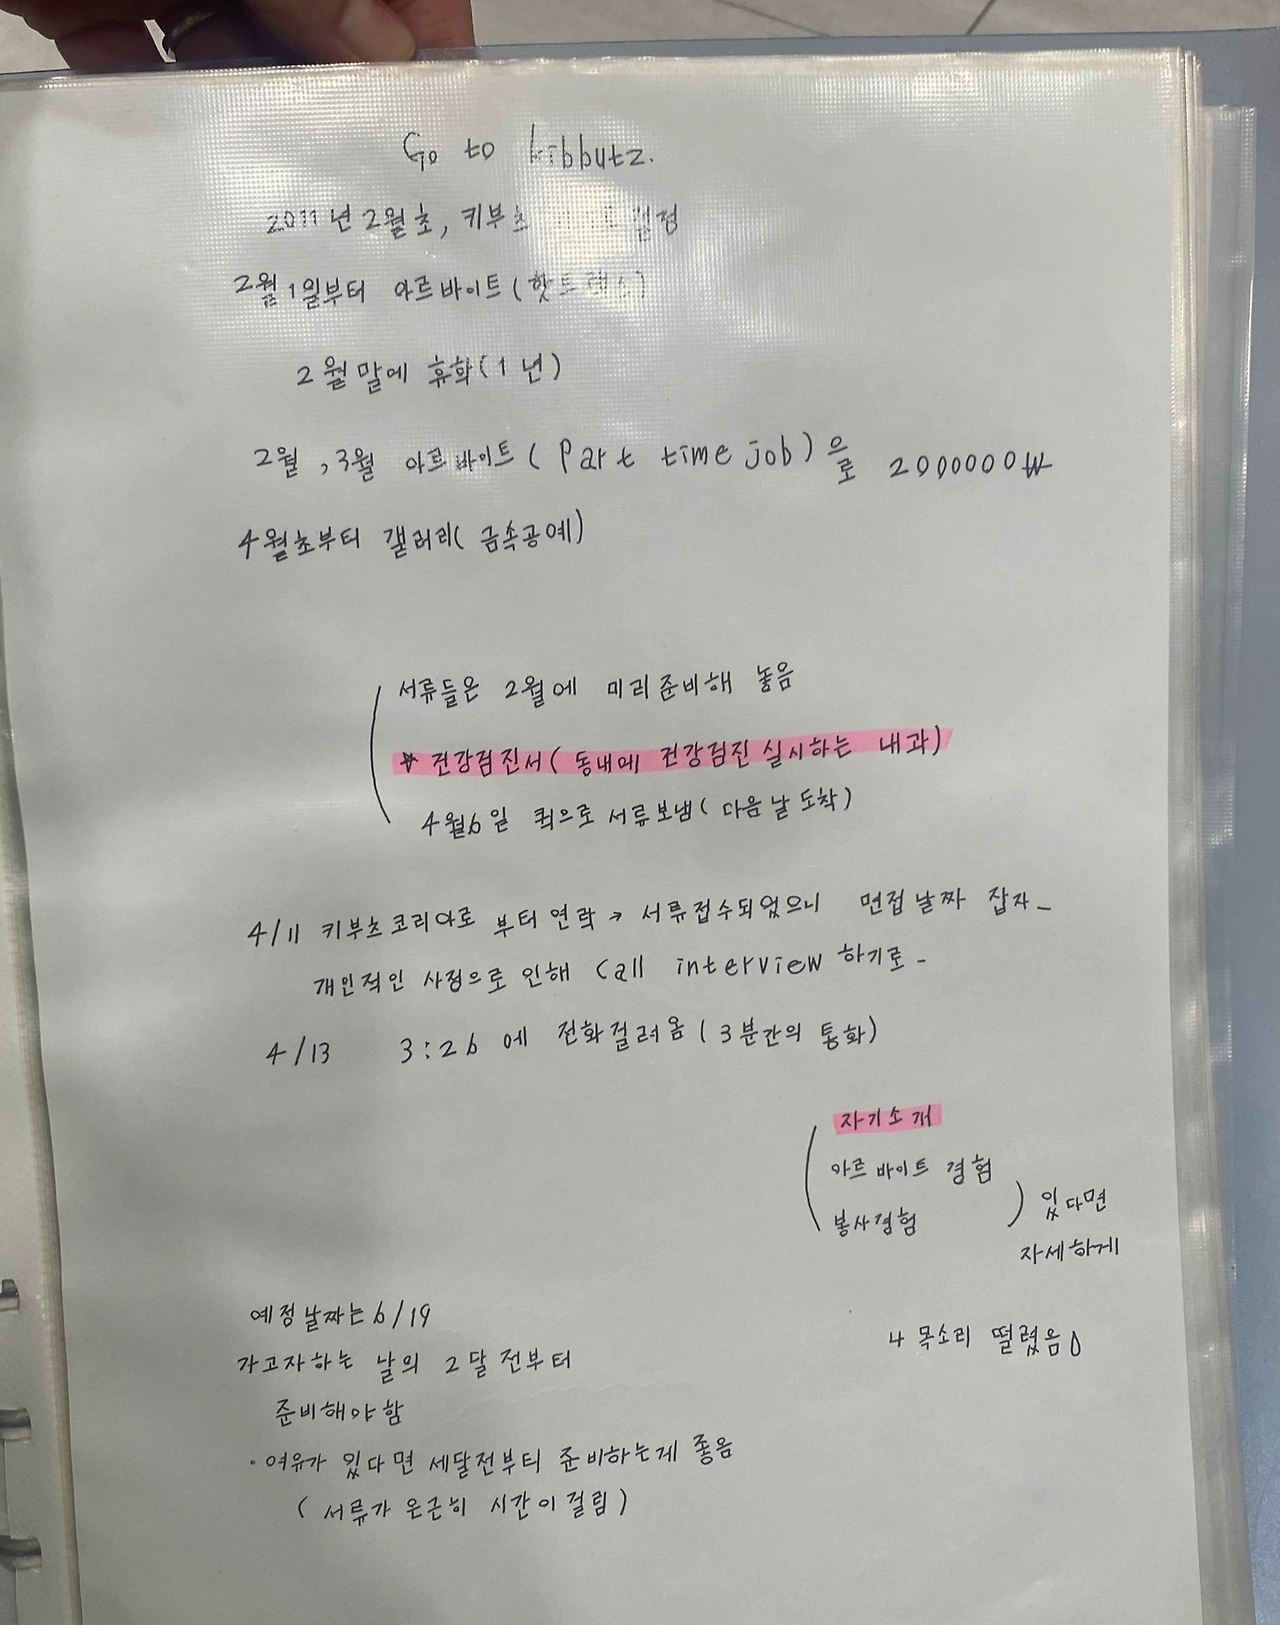 Go to kibbutz.
2011년 2월초, 키부츠 결정
2월 1일부터 아르바이트(핫트랙스)
2월말에 휴학(1년)
2월, 3월 아르바이트(Part time job)으로 2000000₩
4월초부터 갤러리(금속공예)
서류들은 2월에 미리준비해 놓음
★ 건강검진서(동내에 건강검진 실시하는 내과)
4월6일 퀵으로 서류보냄(다음날 도착)
4/11 키부츠코리아로 부터연락→ 서류접수되었으니 면접날짜 잡자_
개인적인 사정으로 인해 Call interview 하기로_
4/13 3:26에 전화걸려옴(3분간의 통화)
자기소개
아르바이트 경험
봉사경험
) 있다면
자세하게
↳ 목소리 떨렸음
예정날짜는 6/19
가고자하는 날의 2달전부터
준비해야함
· 여유가 있다면 세달전부터 준비하는게 좋음
(서류가 은근히 시간이걸림)